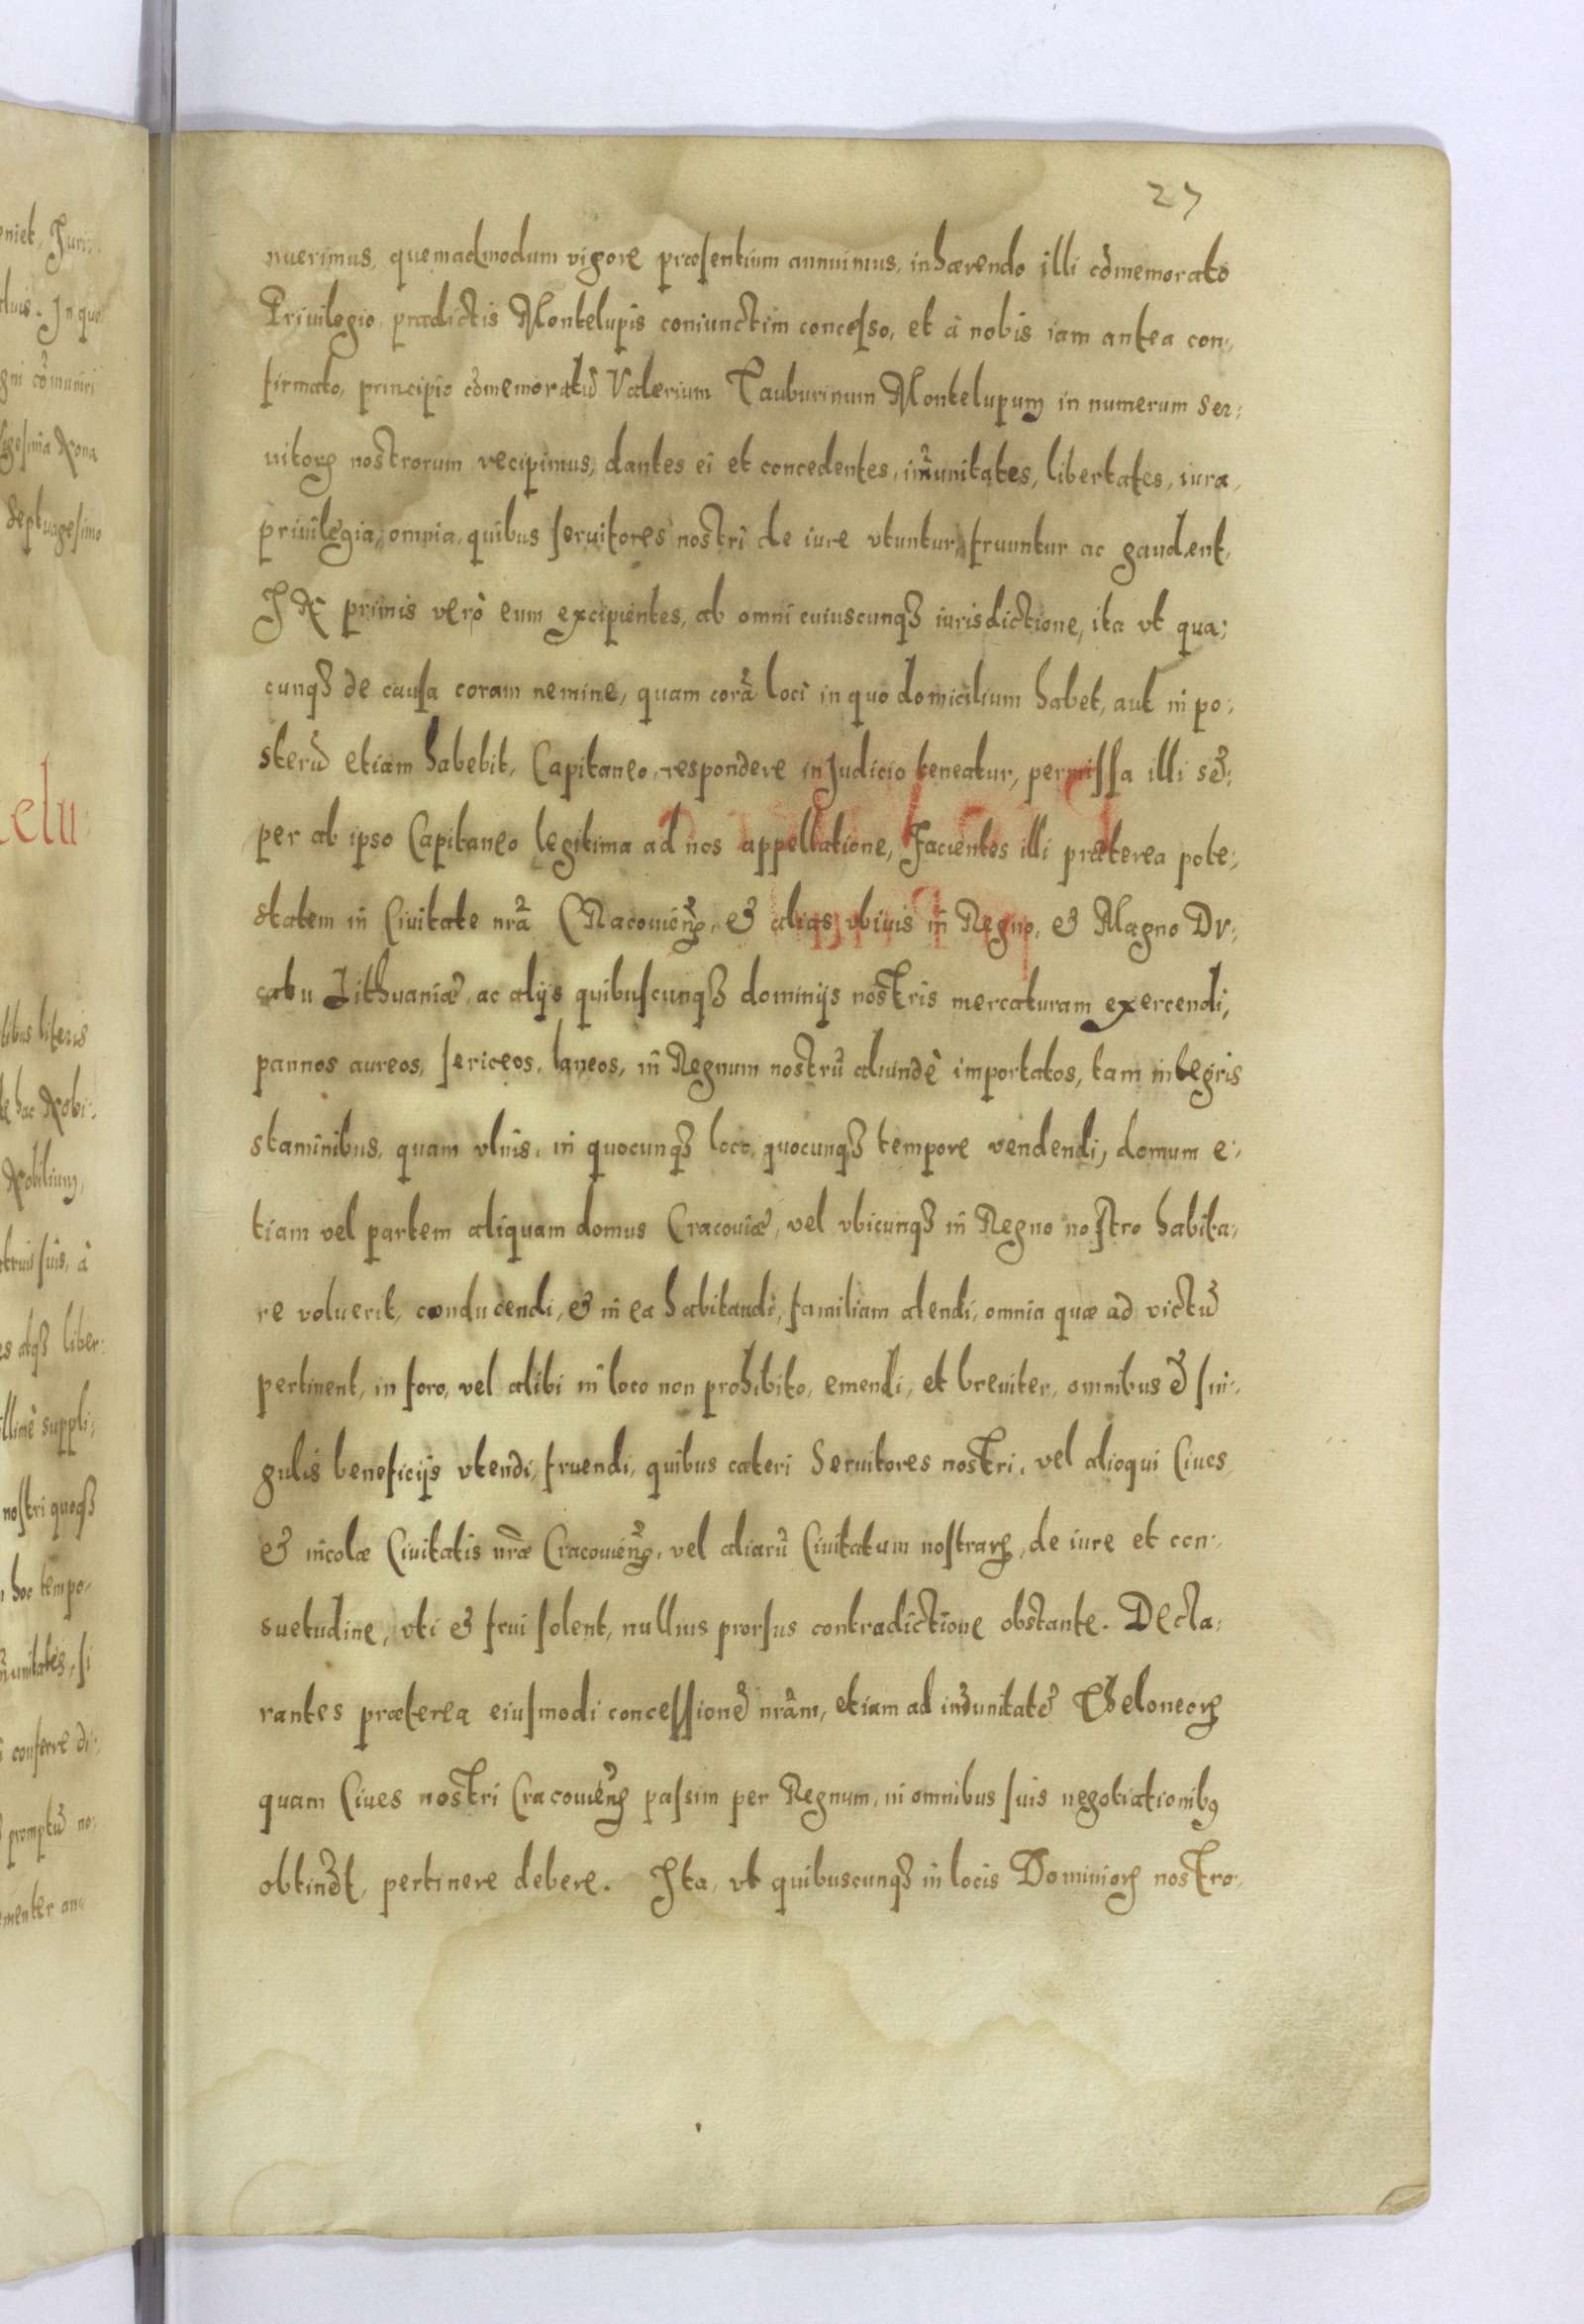 27
nuerimus, quemadmodum vigore præsentium annuimus, inhærendo illi cõmemorato
Priuilegio prædictis Montelupis coniunctim concesso, et à nobis iam antea con-
firmato, principio cõmemoratũ Valerium Tauburinum Montelupum in numerum ser-
uitorꝝ nostrorum recipimus, dantes ei et concedentes, im̃unitates, libertates, iura,
priuilegia, omnia, quibus seruitores nostri de iure vtuntur, fruuntur ac gaudent.
IN primis verò eum excipientes, ab omni cuiuscunqꝫ iurisdictione, ita vt qua-
cunqꝫ de causa coram nemine, quam corã loci in quo domicilium habet, aut in po-
sterũ etiam habebit, Capitaneo, respondere in Judicio teneatur, permissa illi sẽ-
per ab ipso Capitaneo legitima ad nos appellatione, Facientes illi præterea pote-
statem in Ciuitate nrã Cracouieñ, & alias vbiuis in Regno, & Magno Du-
catu Lithuaniæ, ac alijs quibuscunqꝫ dominijs nostris mercaturam exercendi,
pannos aureos, sericeos, laneos, in Regnum nostrũ aliundè importatos, tam integris
staminibus, quam vlnis, in quocunqꝫ loco, quocunqꝫ tempore vendendi, domum e-
tiam vel partem aliquam domus Cracouiæ, vel vbicunqꝫ in Regno nostro habita-
re voluerit, conducendi, & in ea habitandi, familiam alendi, omnia quæ ad victũ
pertinent, in foro, vel alibi in loco non prohibito, emendi, et breuiter, omnibus & sin-
gulis beneficijs vtendi, fruendi, quibus cæteri Seruitores nostri, vel alioqui Ciues
& incolæ Ciuitatis nrã̃e Cracouieñ, vel aliarũ Ciuitatum nostrarꝝ, de iure et con-
suetudine, vti & frui solent, nullius prorsus contradictione obstante. Decla-
rantes præterea eiusmodi concessionẽ nrãm, etiam ad im̃unitatẽ Theloneorꝝ
quam Ciues nostri Cracouieñ passim per Regnum, in omnibus suis negotiationibꝯ
obtinẽt, pertinere debere. Ita, vt quibuscunqꝫ in locis Dominiorꝝ nostro-